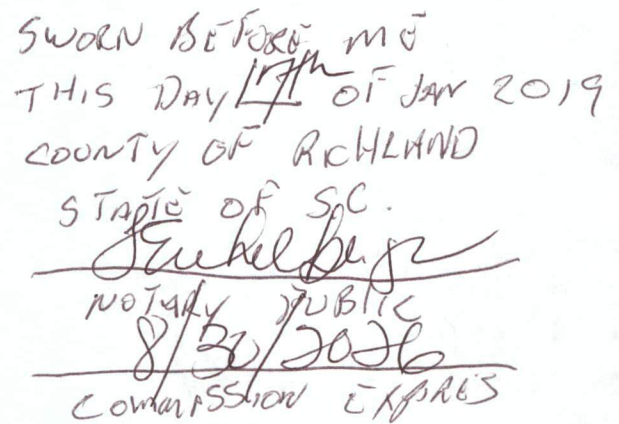 SWORN BEFORE ME
THIS DAY 17th OF JAN 2019
COUNTY OF RICHLAND
STATE OF S.C.
NOTARY PUBLIC
8/30/2026
COMMISSION EXPIRES